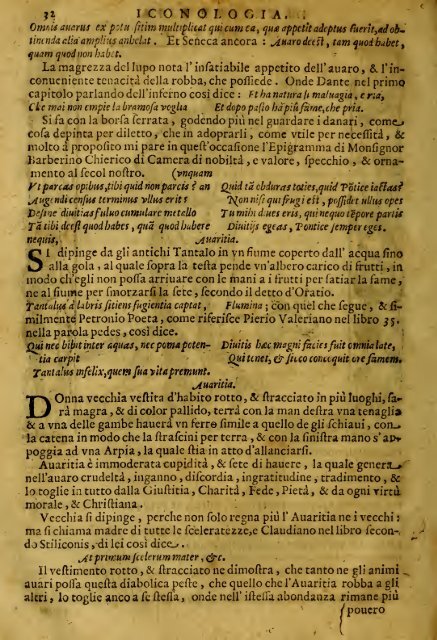 32 ICONOLOGIA.
Omnis auarus ex potu sitim multiplicat qui cum ea, quæ appetit adeptus fuerit, ad ob-
tinenda alia amplius anhelat. Et Seneca ancora: Auaro deest, tam quod habet,
quam quod non habet.
La magrezza del lupo nota l'insatiabile appetito dell'auaro, & l'in-
conueniente tenacità della robba, che possiede. Onde Dante nel primo
capitolo parlando dell'inferno così dice: Et ha natura si maluagia, e ria,
Che mai non empie la bramosa voglia Et dopo pasto hà più fame, che pria.
Si fa con la borsa serrata, godendo più nel guardare i danari, come
cosa depinta per diletto, che in adoprarli, come vtile per necessità, &
molto à proposito mi pare in quest'occasione l'Epigramma di Monsignor
Barberino Chierico di Camera di nobiltà, e valore, specchio, & orna-
mento al secol nostro. (vnquam
Vt parcas opibus, tibi quid non parcis? an Quid tā obduras toties, quid Pōtice iactas?
Augendi census terminus vllus erit? Non nisi qui frugi est, possidet vllus opes
Desine diuitias fuluo cumulare metallo Tu mihi dues eris, qui nequo tēpore partis
Tā tibi deest quod habes, quā quod habere Diuitijs egeas, Pontice semper eges.
nequis, Auaritia.
SI dipinge da gli antichi Tantalo in vn fiume coperto dall'acqua sino
alla gola, al quale sopra la testa pende vn'albero carico di frutti, in
modo ch'egli non possa arriuare con le mani a i frutti per satiar la fame,
ne al fiume per smorzarsi la sete, secondo il detto d'Oratio.
Tantalus à labris sitiens fugientia captat, Flumina; con quel che segue, & si-
milmente Petronio Poeta, come riferisce Pierio Valeriano nel libro 35.
nella parola pedes, così dice.
Qui nec bibit inter aquas, nec poma poten- Diuitis hæc magni facies fuit omnia late,
tia carpit Qui tenet, & sicco concoquit ore famem.
Tantalus infelix, quem sua vita premunt.
Auaritia.
DOnna vecchia vestita d'habito rotto, & stracciato in più luoghi, sa-
rà magra, & di color pallido, terrà con la man destra vna tenaglia
& a vna delle gambe hauerà vn ferro simile a quello de gli schiaui, con
la catena in modo che la strascini per terra, & con la sinistra mano s'ap-
poggia ad vna Arpia, la quale stia in atto d'allanciarsi.
Auaritia è immoderata cupidità, & sete di hauere, la quale genera
nell'auaro crudeltà, inganno, discordia, ingratitudine, tradimento, &
lo toglie in tutto dalla Giustitia, Charità, Fede, Pietà, & da ogni virtù
morale, & Christiana.
Vecchia si dipinge, perche non solo regna più l'Auaritia ne i vecchi:
ma si chiama madre di tutte le sceleratezze, e Claudiano nel libro secon-
do Stiliconis, di lei così dice.
At primum scelerum mater, &c.
Il vestimento rotto, & stracciato ne dimostra, che tanto ne gli animi
auari possa questa diabolica peste, che quello che l'Auaritia robba a gli
altri, lo toglie anco a se stessa, onde nell'istessa abondanza rimane più
pouero